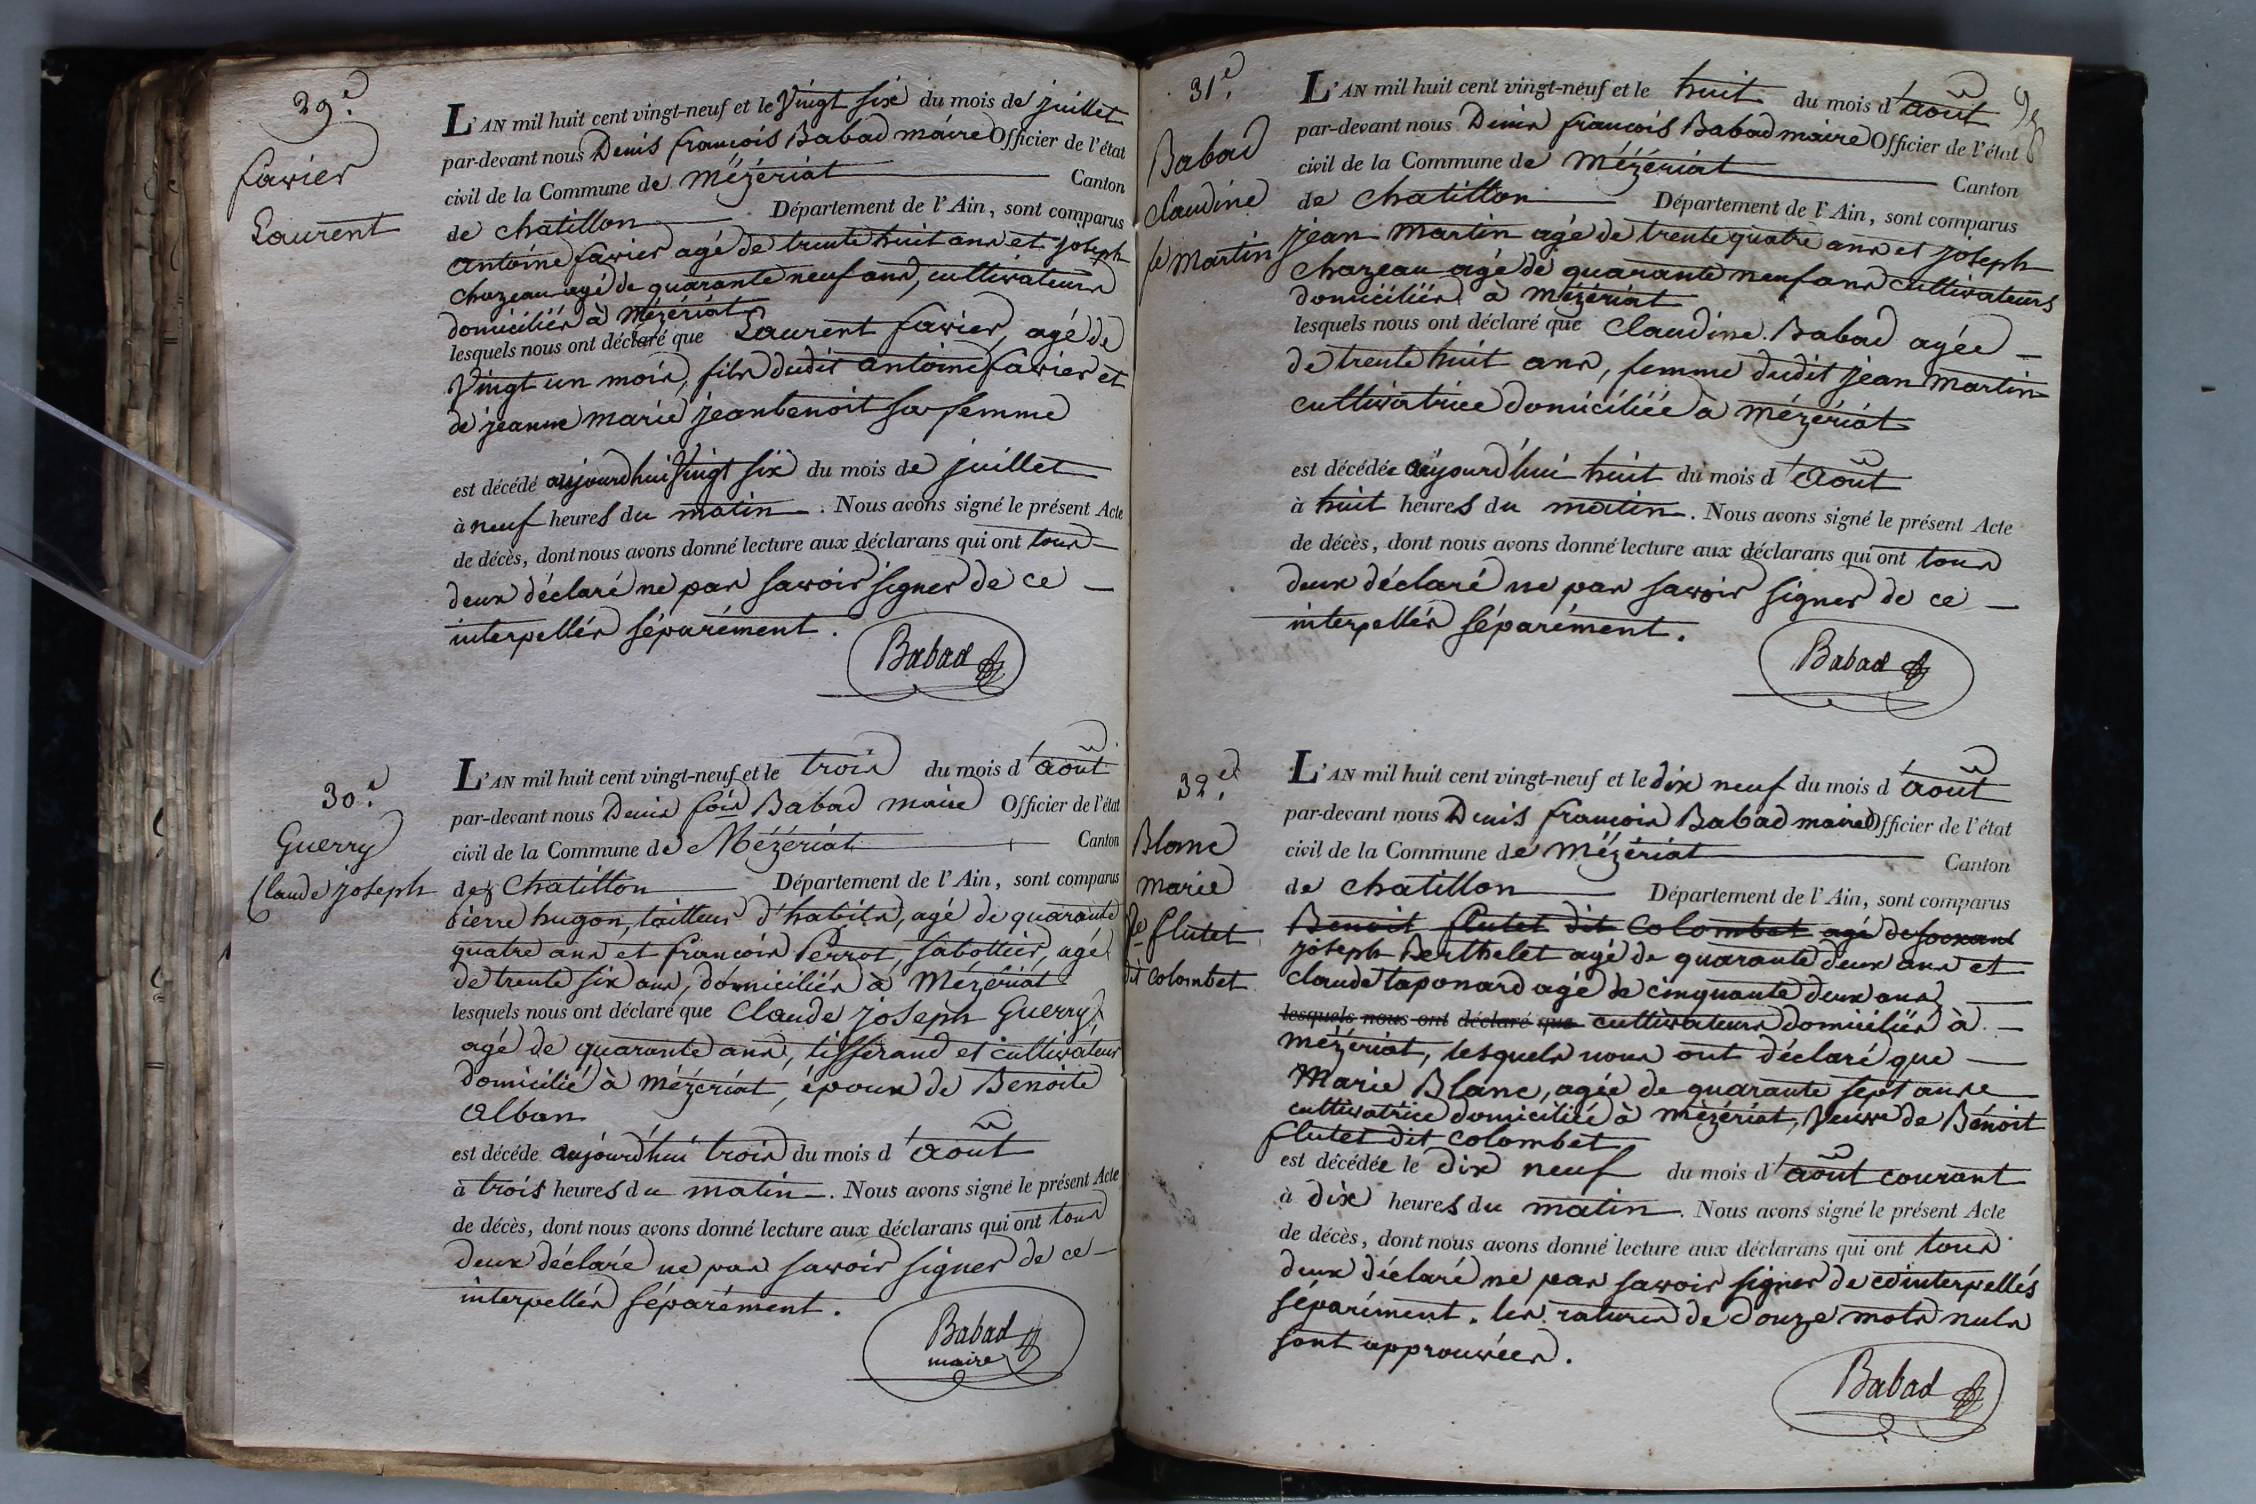 29e.
favier
Laurent
L'AN mil huit cent vingt-neuf et le vingt six du mois de juillet
par-devant nous Denis françois Babad maire Officier de l'état
civil de la Commune de Mézériat Canton
de chatillon Département de l'Ain, sont comparus
antoine favier agé de trente huit ans et joseph
chazeau agé de quarante neuf ans, cultivateurs
domiciliés à Mézériat
lesquels nous ont déclaré que Laurent favier, agé de
vingt un mois, fils dudit antoine favier et
de jeanne marie jeanbenoit sa femme
est décédé aujourdhui vingt six du mois de juillet
à neuf heures du matin. Nous avons signé le présent Acte
de décès, dont nous avons donné lecture aux déclarans qui ont tous
deux déclaré ne pas savoir signer de ce
interpellés séparément.
Babad
30e.
Guerry
Claude joseph
L'AN mil huit cent vingt-neuf et le trois du mois d'août
par-devant nous Denis fois Babad maire Officier de l'état
civil de la Commune de Mézériat Canton
de Chatillon Département de l'Ain, sont comparus
Pierre hugon, tailleur d'habits, agé de quarante
quatre ans et françois Perrot, sabottier, agé
de trente six ans, domiciliés à Mézériat
lesquels nous ont déclaré que Claude joseph Guerry
agé de quarante ans, tisserand et cultivateur
domicilié à mézériat, époux de Benoite
Alban
est décédé aujourd'hui trois du mois d'août
à trois heures du matin. Nous avons signé le présent Acte
de décès, dont nous avons donné lecture aux déclarans qui ont tous
deux déclaré ne pas savoir signer de ce
interpellés séparément.
Babad
maire
31e.
Babad
claudine
fe Martin
L'AN mil huit cent vingt-neuf et le huit du mois d'août
par-devant nous Denis françois Babad maire Officier de l'état
civil de la Commune de Mézériat Canton
de chatillon Département de l'Ain, sont comparus
jean martin agé de trente quatre ans et joseph
chazeau agé de quarante neuf ans cultivateurs
domiciliés à Mézériat
lesquels nous ont déclaré que claudine Babad agée
de trente huit ans, femme dudit jean Martin
cultivatrice domiciliée à mézériat
est décédée aujourd'hui huit du mois d'août
à huit heures du matin. Nous avons signé le présent Acte
de décès, dont nous avons donné lecture aux déclarans qui ont tous
deux déclaré ne pas savoir signer de ce
interpellés séparément.
Babad
32e.
Blanc
marie
ve flutet
dit colombet
L'AN mil huit cent vingt-neuf et le dix neuf du mois d'août
par-devant nous Denis françois Babad maire Officier de l'état
civil de la Commune de Mézériat Canton
de chatillon Département de l'Ain, sont comparus
Benoit flutet dit Colombet agé de soixant
joseph Berthelet agé de quarante deux ans et
claude taponard agé de cinquante deux ans
lesquels nous ont déclaré que cultivateurs domiciliés à
mézériat, lesquels nous ont déclaré que
Marie Blanc, agée de quarante sept ans
cultivatrice domiciliée à mézériat, veuve de Bénoit
flutet dit colombet,
est décédée le dix neuf du mois d'août courant
à dix heures du matin. Nous avons signé le présent Acte
de décès, dont nous avons donné lecture aux déclarans qui ont tous
deux déclaré ne pas savoir signer de ce interpellés
séparément. les ratures de douze mots nuls
sont approuvées.
Babad